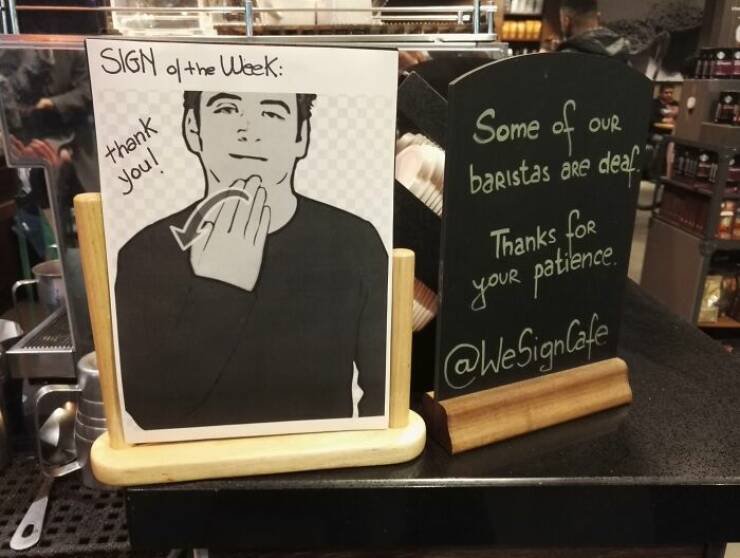 SIGN of the Week:
thank
you!
Some of our
baristas are deaf.
Thanks for
your patience.
@WeSignCafe